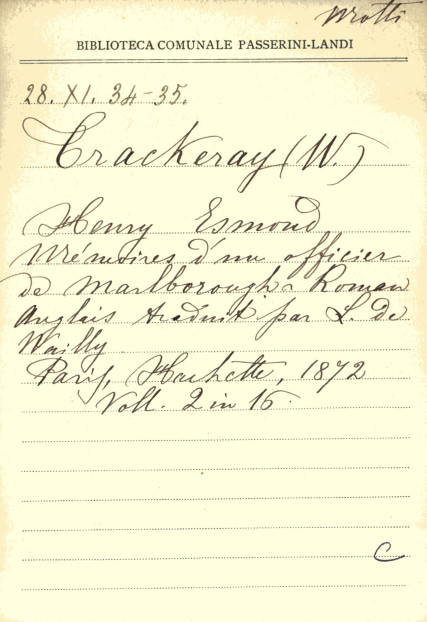 Mrotti
BIBLIOTECA COMUNALE PASSERINI-LANDI
28. XI. 34-35.
Crackeray (W.)
Henry Esmond
Mémoires d'un officier
de Marlborough - Roman
Anglais traduit par L. de
Wailly
Paris, Hachette, 1872
Voll. 2 in 16.
C